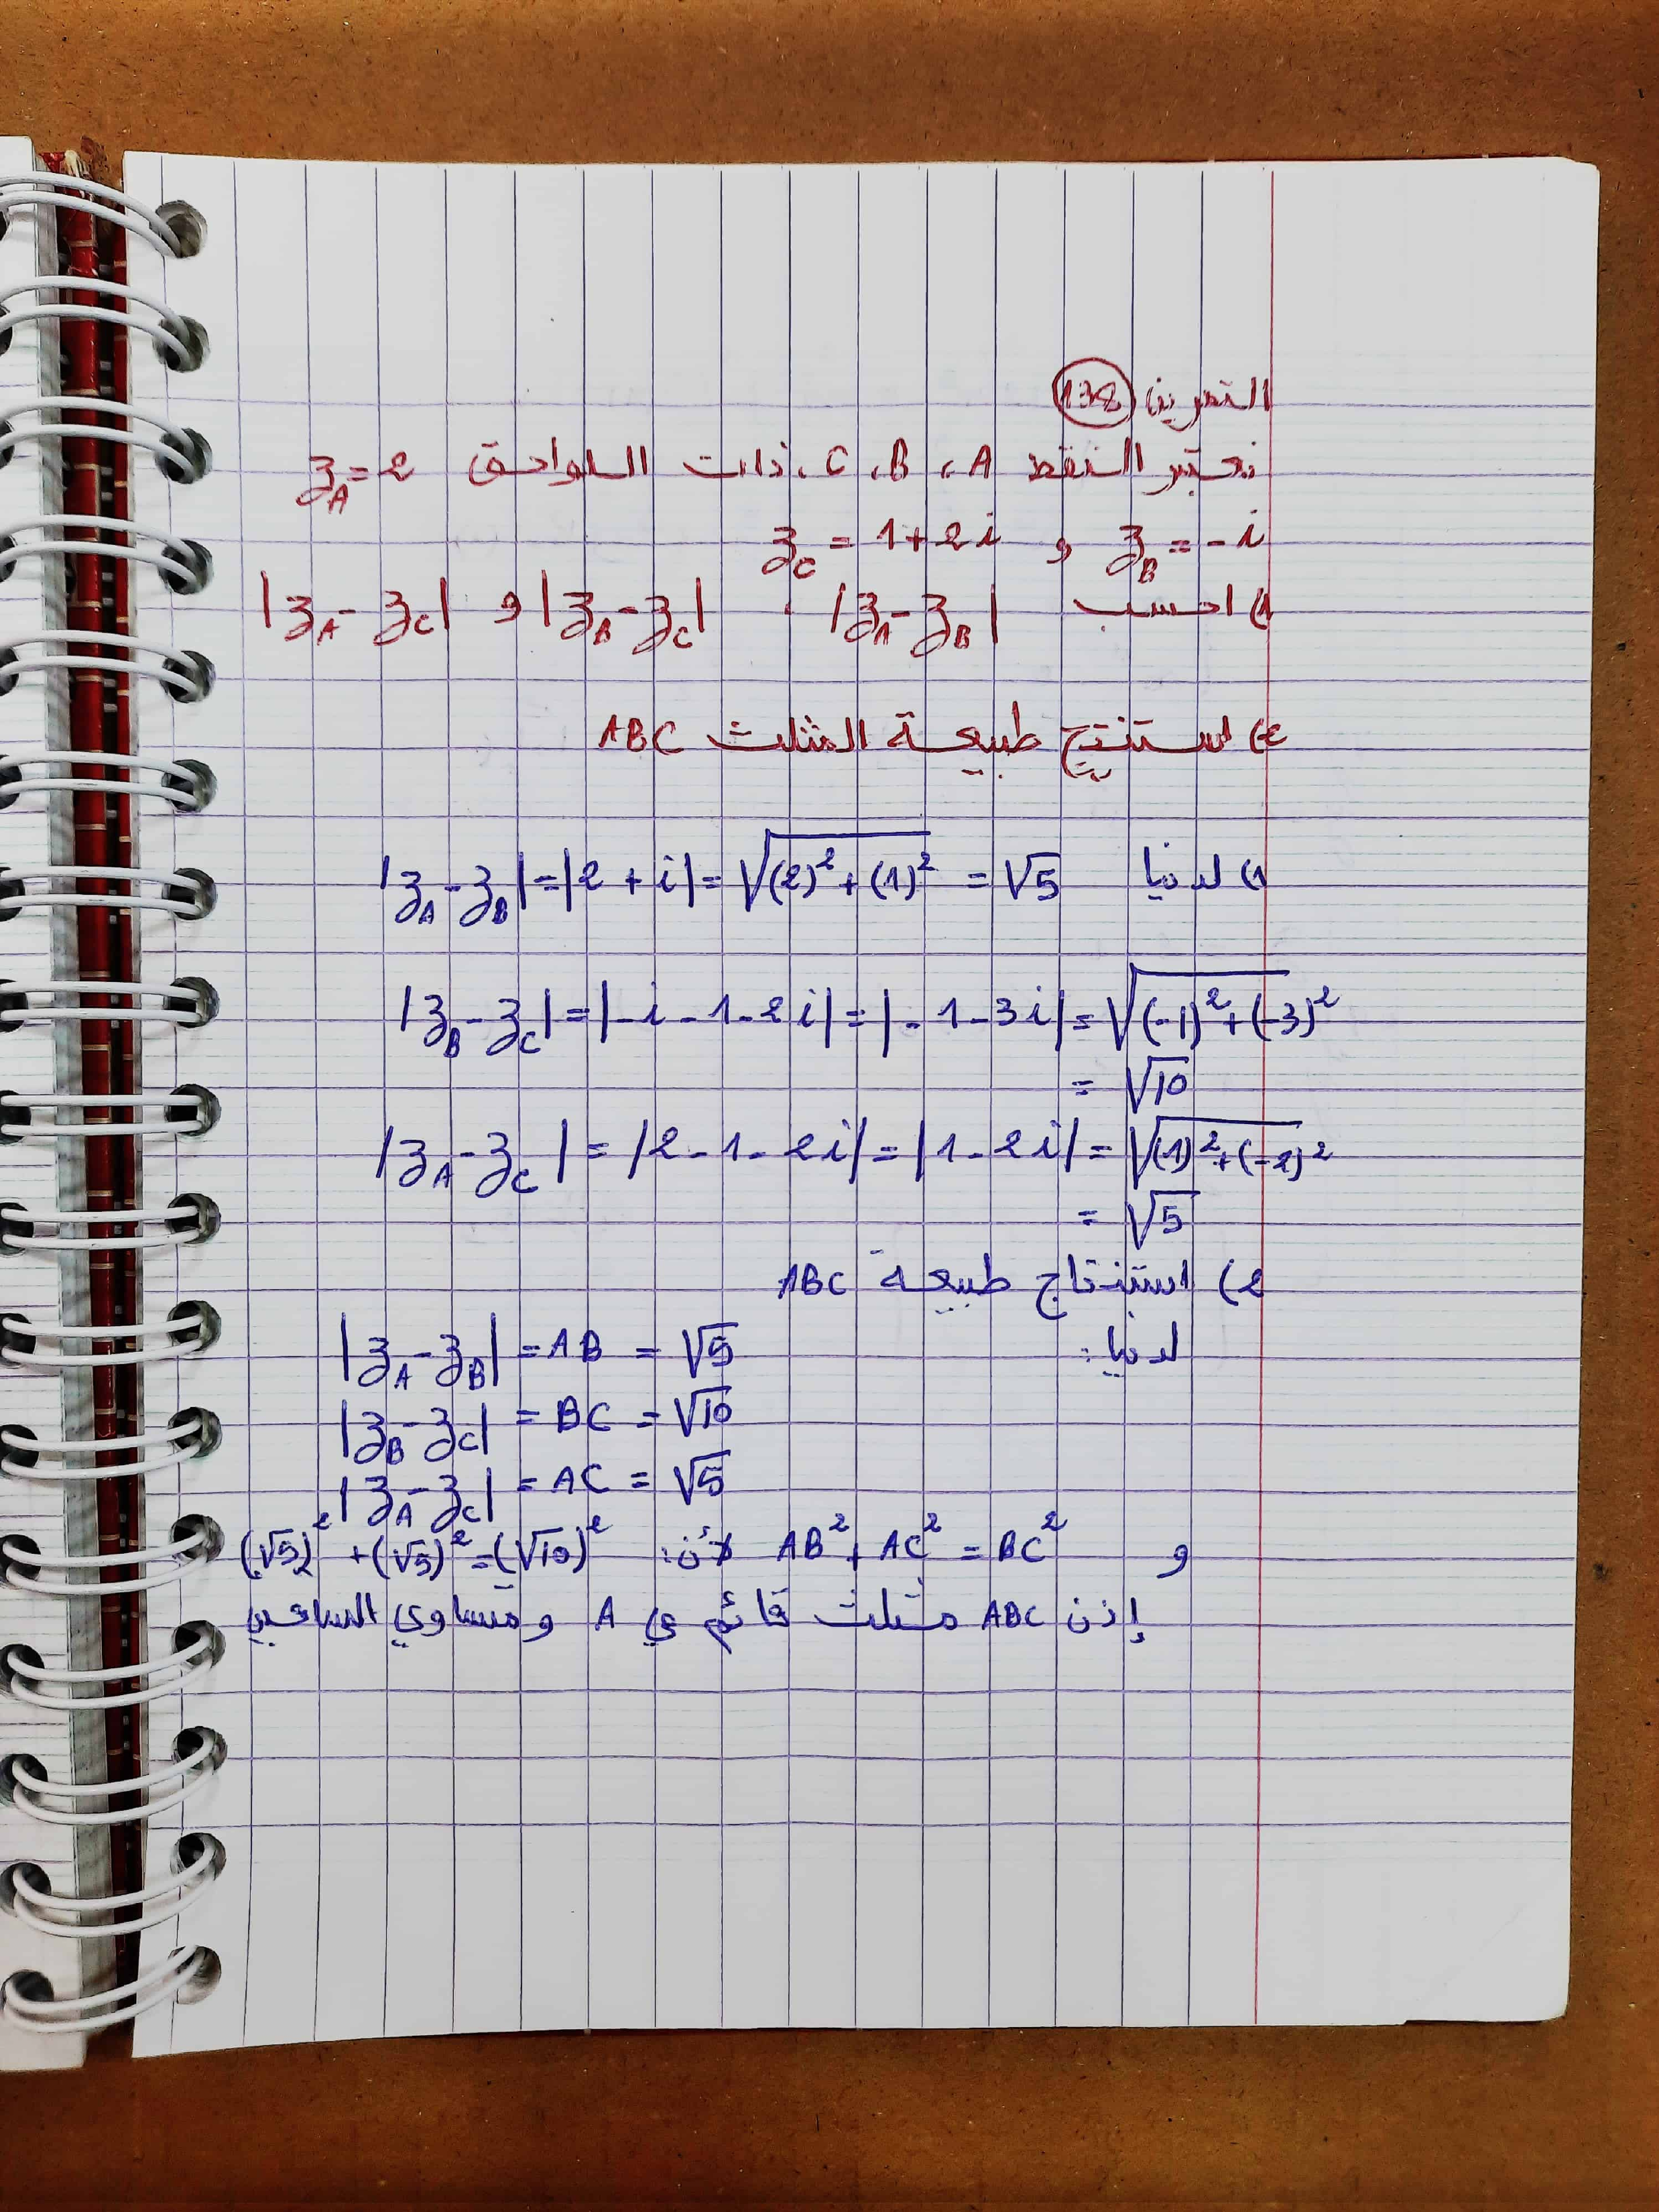 التمرين 138
نعتبر النقط A ، B ، C ، ذات اللواحق z_A = 2
z_B = -i و z_C = 1+2i
1) احسب |z_A - z_B| ، |z_B - z_C| و |z_A - z_C|
2) استنتج طبيعة المثلث ABC
1) لدينا |z_A - z_B| = |2 + i| = √((2)² + (1)²) = √5
|z_B - z_C| = |-i - 1 - 2i| = |-1 - 3i| = √((-1)² + (-3)²)
= √10
|z_A - z_C| = |2 - 1 - 2i| = |1 - 2i| = √((1)² + (-2)²)
= √5
2) استنتاج طبيعة ABC
لدينا: |z_A - z_B| = AB = √5
|z_B - z_C| = BC = √10
|z_A - z_C| = AC = √5
و AB² + AC² = BC² لأن: (√5)² + (√5)² = (√10)²
إذن ABC مثلث قائم في A ومتساوي الساقين